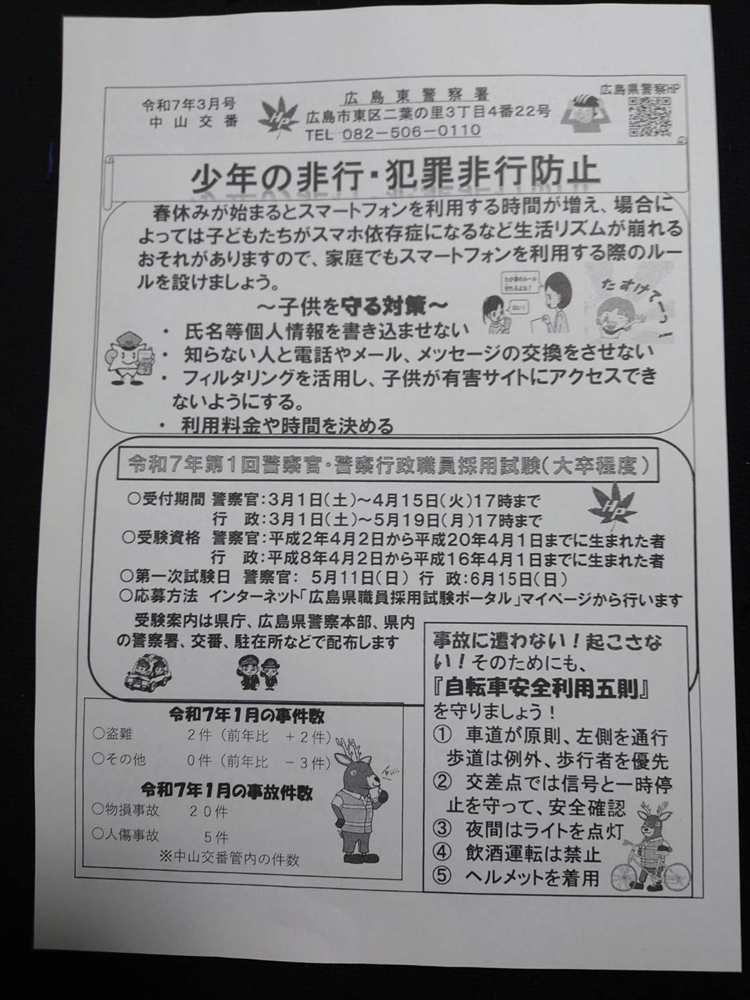 令和7年3月号
中山交番
HP
広島東警察署
広島市東区二葉の里3丁目4番22号
TEL 082-506-0110
広島県警察HP
少年の非行・犯罪非行防止
春休みが始まるとスマートフォンを利用する時間が増え、場合に
よっては子どもたちがスマホ依存症になるなど生活リズムが崩れる
おそれがありますので、家庭でもスマートフォンを利用する際のルー
ルを設けましょう。
～子供を守る対策～
たすけてーっ!
・ 氏名等個人情報を書き込ませない
・ 知らない人と電話やメール、メッセージの交換をさせない
・ フィルタリングを活用し、子供が有害サイトにアクセスでき
ないようにする。
・ 利用料金や時間を決める
令和7年第1回警察官・警察行政職員採用試験(大卒程度)
HP
○受付期間 警察官:3月1日(土)～4月15日(火)17時まで
行 政:3月1日(土)～5月19日(月)17時まで
○受験資格 警察官:平成2年4月2日から平成20年4月1日までに生まれた者
行 政:平成8年4月2日から平成16年4月1日までに生まれた者
○第一次試験日 警察官: 5月11日(日) 行 政:6月15日(日)
○応募方法 インターネット「広島県職員採用試験ポータル」マイページから行います
受験案内は県庁、広島県警察本部、県内
の警察署、交番、駐在所などで配布します
令和7年1月の事件数
○盗難 2件(前年比 +2件)
○その他 0件(前年比 -3件)
令和7年1月の事故件数
○物損事故 20件
○人傷事故 5件
※中山交番管内の件数
事故に遭わない!起こさな
い!そのためにも、
『自転車安全利用五則』
を守りましょう!
① 車道が原則、左側を通行
歩道は例外、歩行者を優先
② 交差点では信号と一時停
止を守って、安全確認
③ 夜間はライトを点灯
④ 飲酒運転は禁止
⑤ ヘルメットを着用